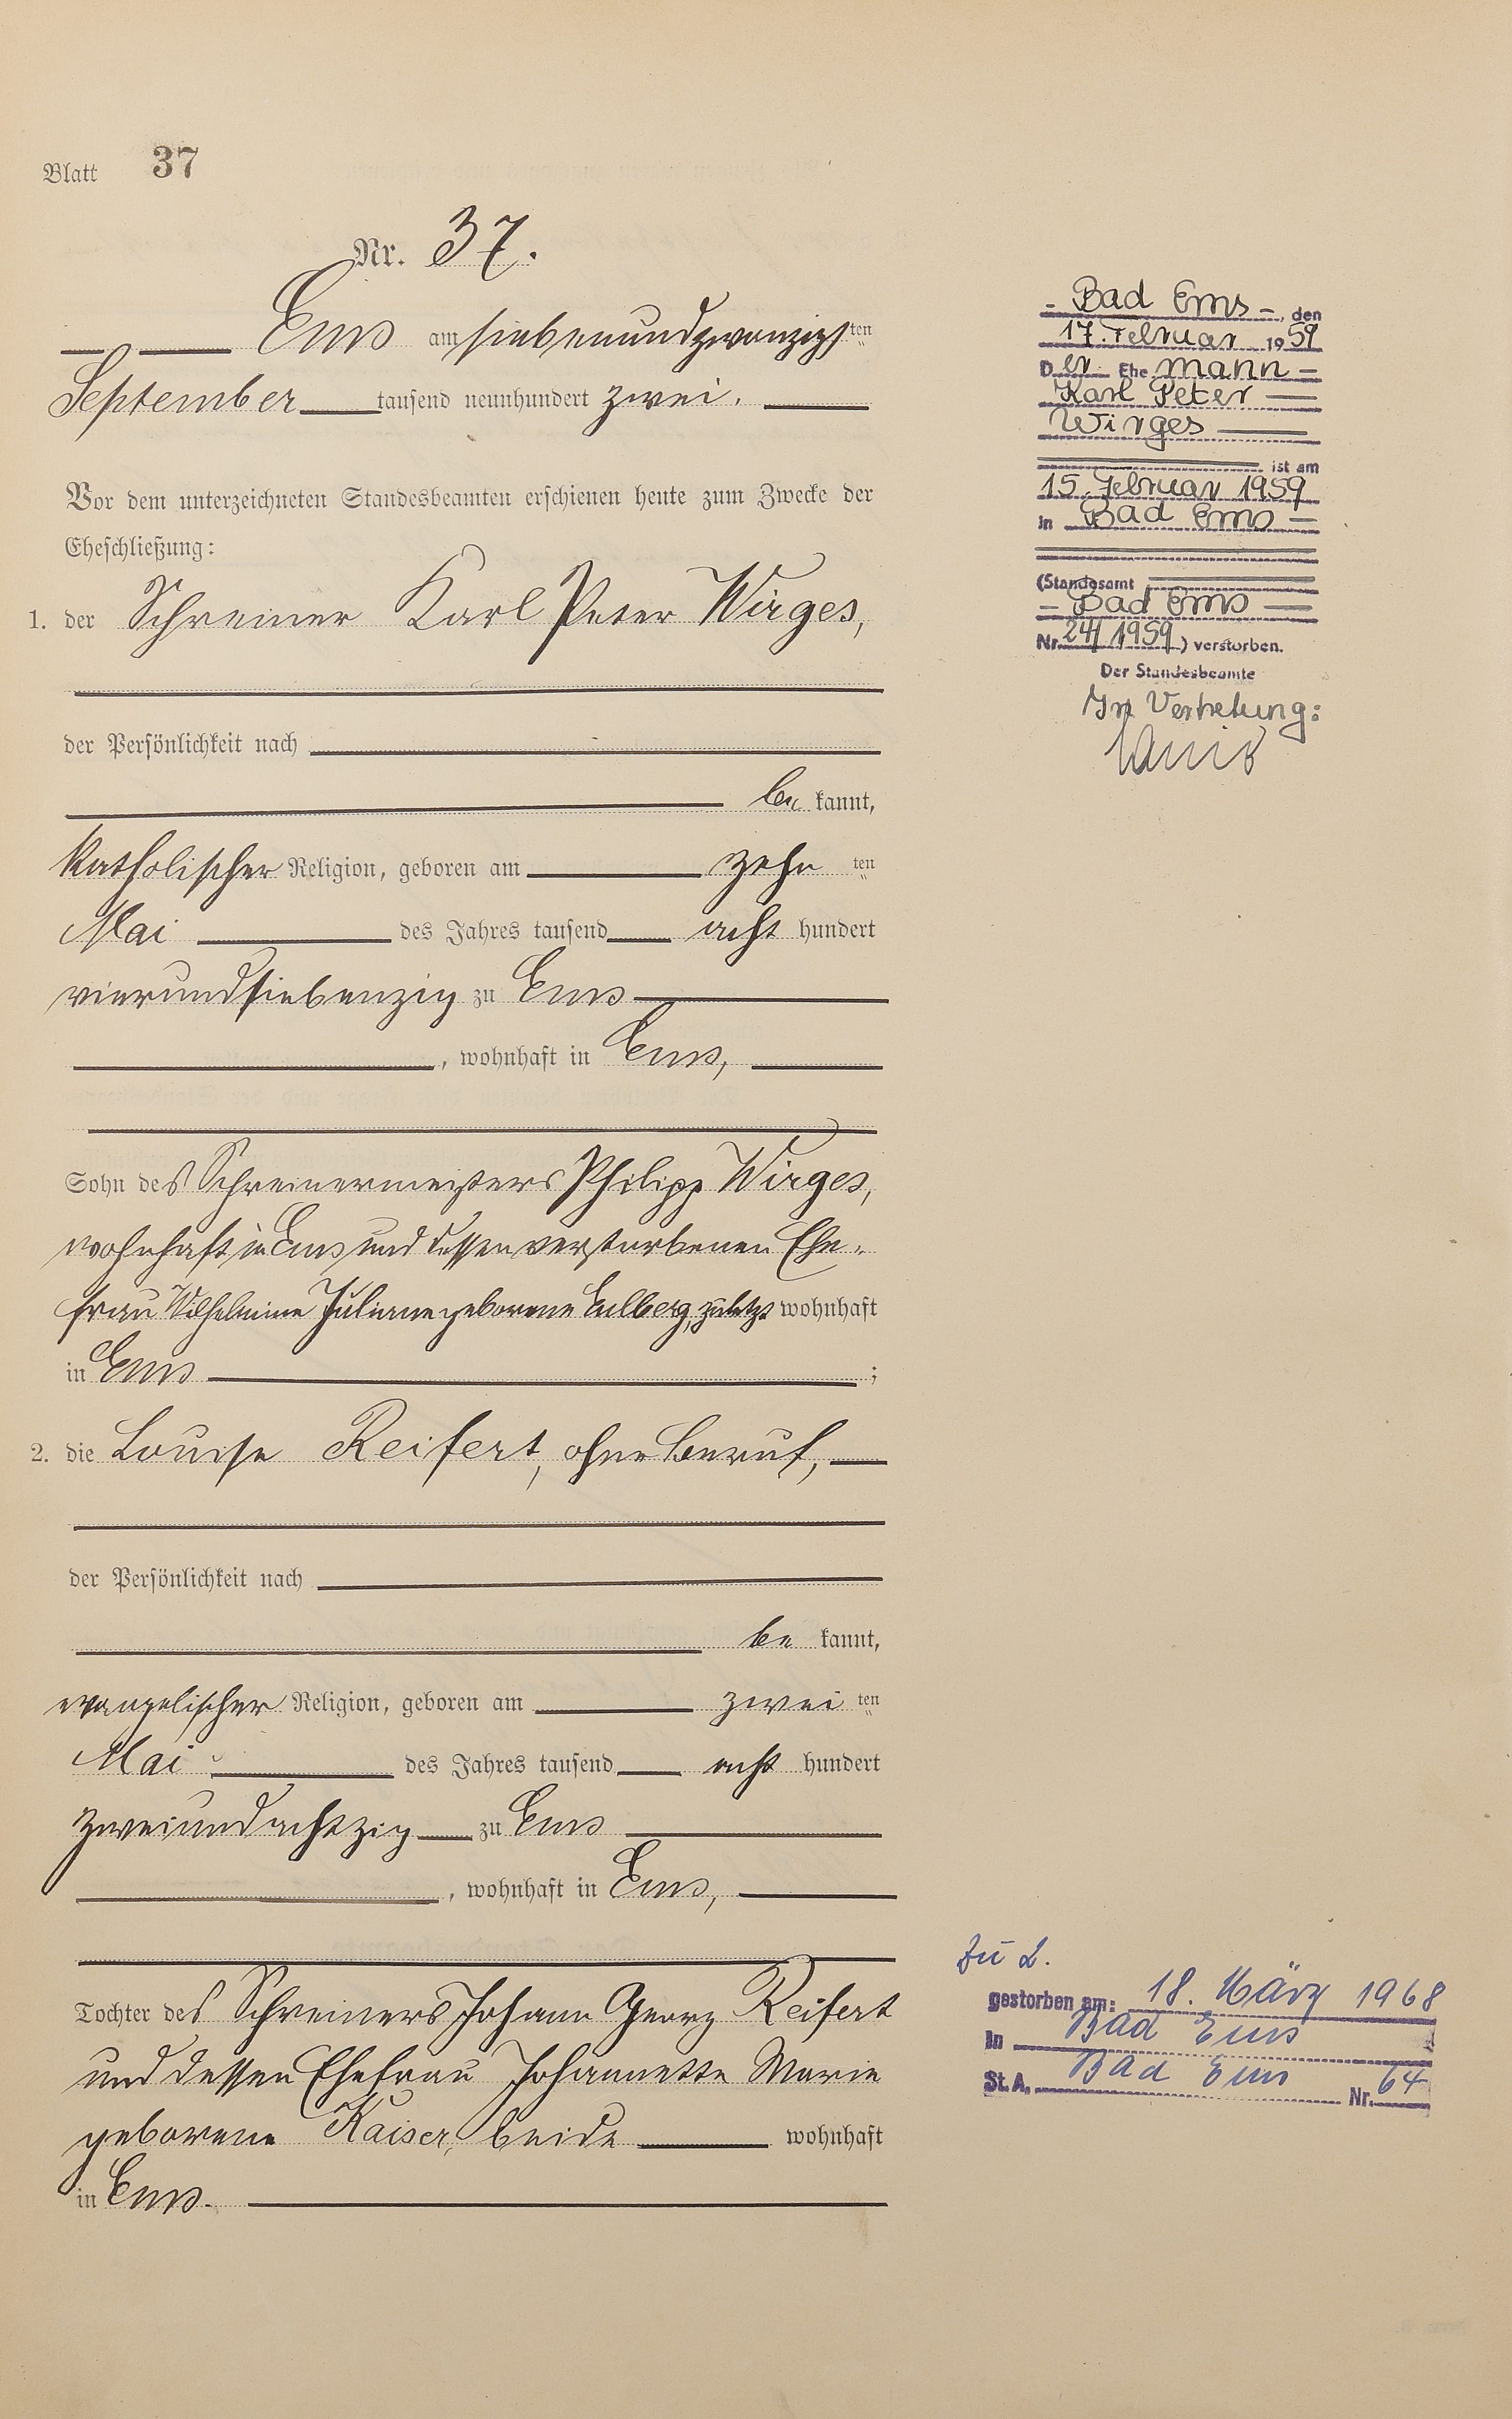 Blatt 37
Nr. 37.
Ems am siebenundzwanzigsten
September tausend neunhundert zwei.
Vor dem unterzeichneten Standesbeamten erschienen heute zum Zwecke der
Eheschließung:
1. der Schreiner Karl Peter Wirges,
der Persönlichkeit nach
be kannt,
katholischer Religion, geboren am zehn ten
Mai des Jahres tausend acht hundert
vierundsiebenzig zu Ems
, wohnhaft in Ems,
Sohn des Schreinermeisters Philipp Wirges,
wohnhaft in Ems und dessen verstorbenen Ehe-
frau Wilhelmine Juliane geborene Eulberg, zuletzt wohnhaft
in Ems ;
2. die Louise Reifert, ohne Beruf,
der Persönlichkeit nach
be kannt,
evangelischer Religion, geboren am zwei ten
Mai des Jahres tausend acht hundert
zweiundachtzig zu Ems
, wohnhaft in Ems,
Tochter des Schreiners Johann Georg Reifert
und dessen Ehefrau Johannette Marie
geborene Kaiser, beide wohnhaft
in Ems.
- Bad Ems -, den
17. Februar 1959
Der Ehe mann -
Karl Peter
Wirges
ist am
15. Februar 1959
in Bad Ems
(Standesamt
- Bad Ems
Nr. 24/1959) verstorben.
Der Standesbeamte
In Vertretung:
Zu 2.
gestorben am: 18. März 1968
in Bad Ems
St. A. Bad Ems Nr. 64